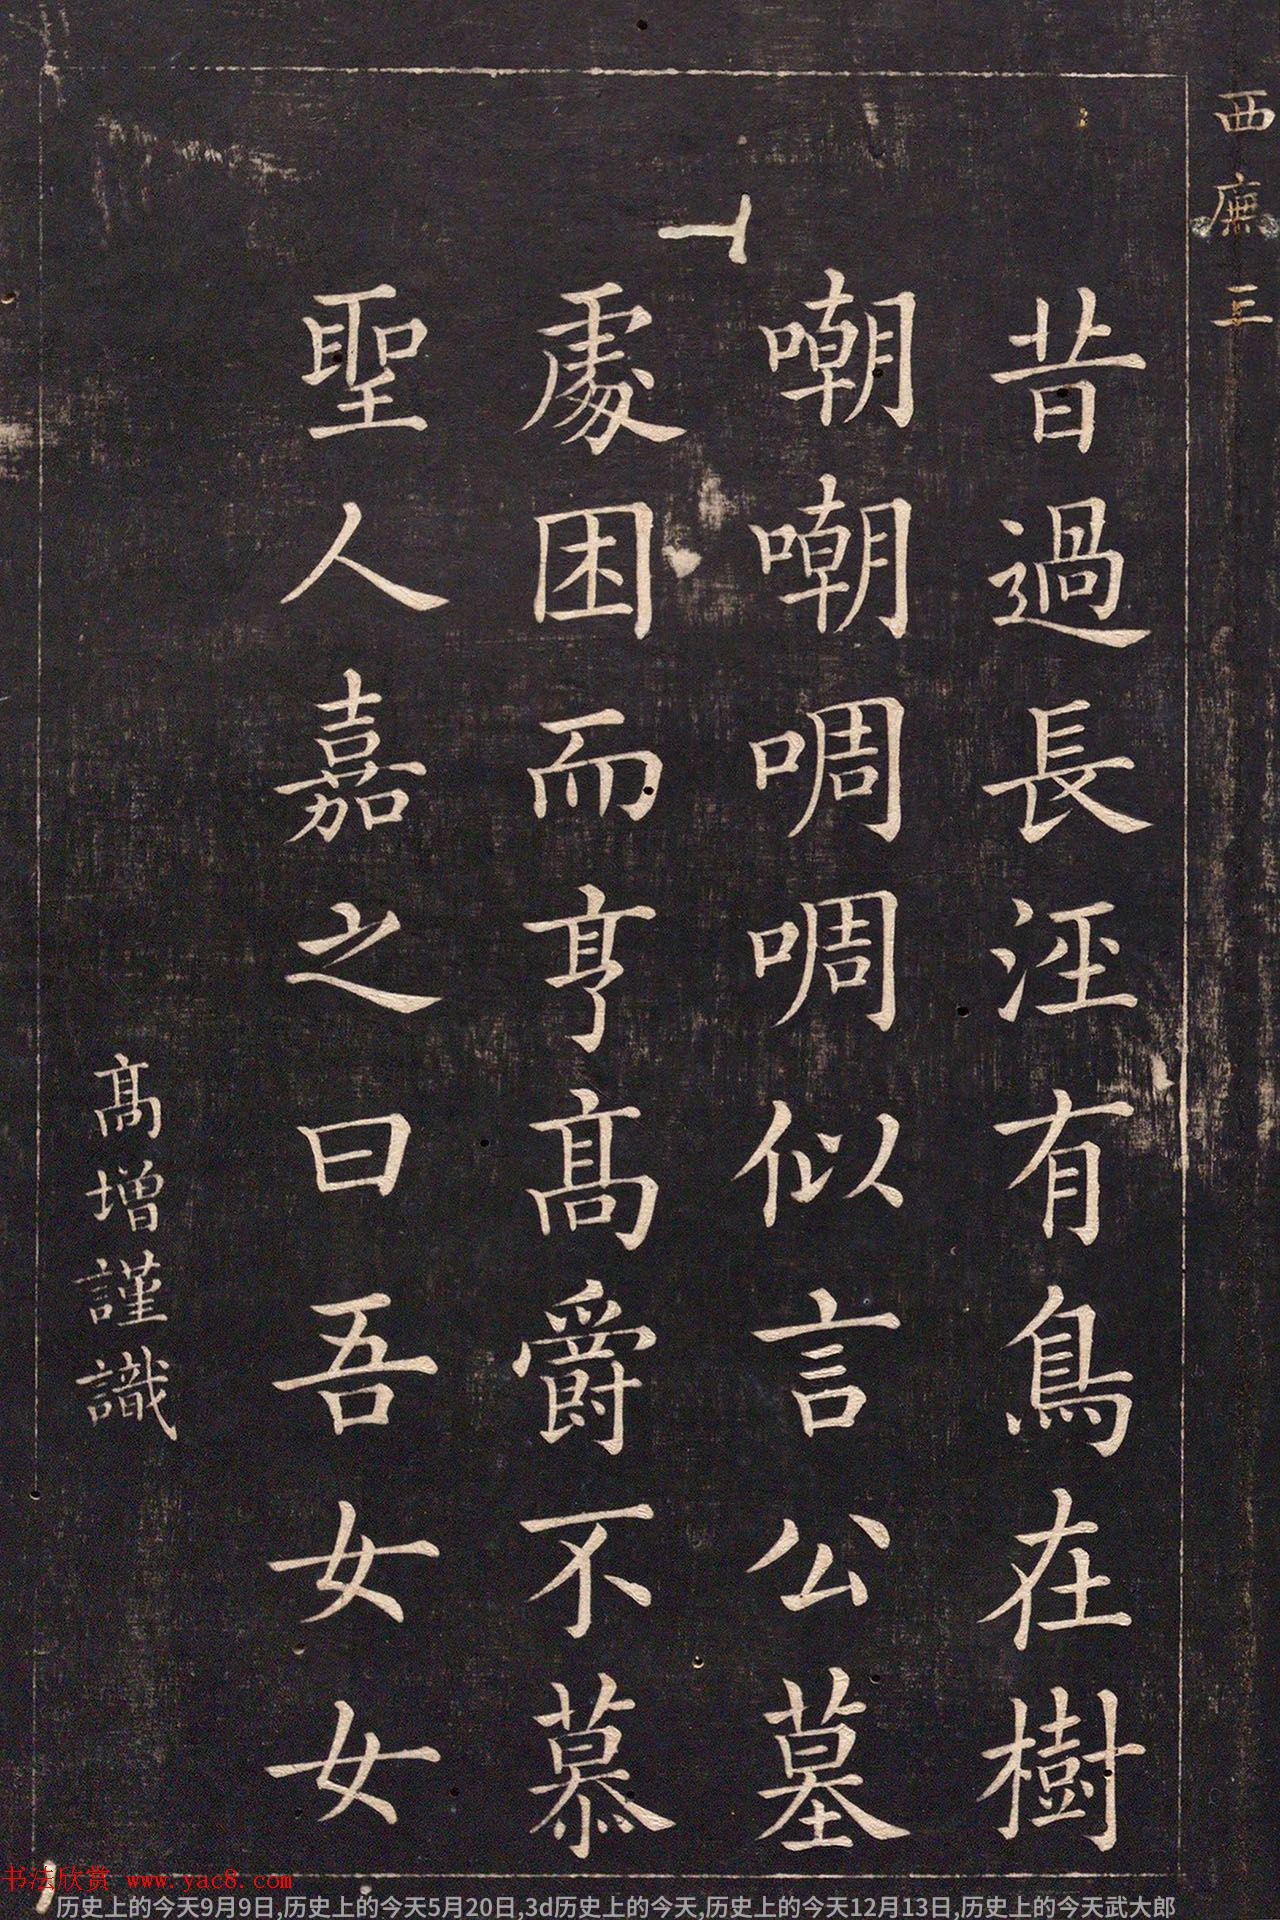 西廡三
昔過長涇有鳥在樹
嘲嘲啁啁似言公墓
處困而亨髙爵不慕
聖人嘉之曰吾女女
髙增謹識
书法欣赏 www.yac8.com
历史上的今天9月9日,历史上的今天5月20日,3d历史上的今天,历史上的今天12月13日,历史上的今天武大郎